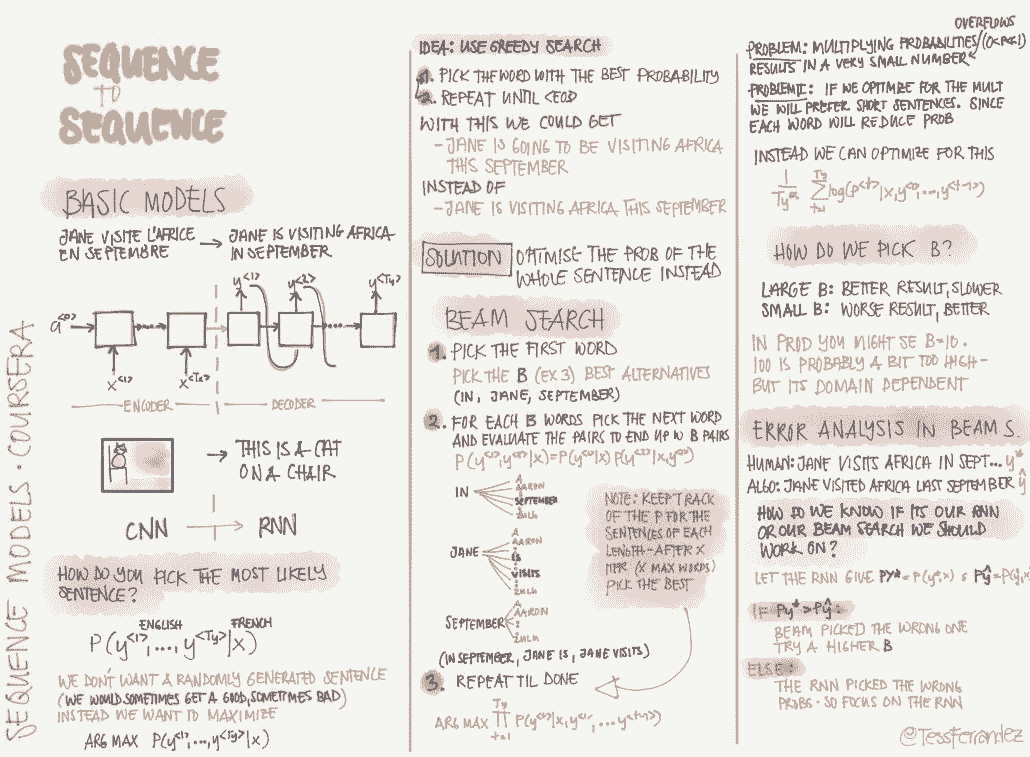 SEQUENCE
TO
SEQUENCE
BASIC MODELS
JANE VISITE L'AFRICE
EN SEPTEMBRE
→ JANE IS VISITING AFRICA
IN SEPTEMBER
y<1> y<2> y<Ty>
a<0>
x<1> x<Tx>
ENCODER DECODER
→ THIS IS A CAT
ON A CHAIR
CNN → RNN
HOW DO YOU PICK THE MOST LIKELY
SENTENCE?
ENGLISH FRENCH
P(y<1>,...,y<Ty>|x)
WE DON'T WANT A RANDOMLY GENERATED SENTENCE
(WE WOULD SOMETIMES GET A GOOD, SOMETIMES BAD)
INSTEAD WE WANT TO MAXIMIZE
ARG MAX P(y<1>,...,y<Ty>|x)
SEQUENCE MODELS · COURSERA
IDEA: USE GREEDY SEARCH
1. PICK THE WORD WITH THE BEST PROBABILITY
2. REPEAT UNTIL <EOD
WITH THIS WE COULD GET
- JANE IS GOING TO BE VISITING AFRICA
THIS SEPTEMBER
INSTEAD OF
- JANE IS VISITING AFRICA THIS SEPTEMBER
SOLUTION OPTIMISE THE PROB OF THE
WHOLE SENTENCE INSTEAD
BEAM SEARCH
1. PICK THE FIRST WORD
PICK THE B (EX 3) BEST ALTERNATIVES
(IN, JANE, SEPTEMBER)
2. FOR EACH B WORDS PICK THE NEXT WORD
AND EVALUATE THE PAIRS TO END UP W B PAIRS
P(y<1>,y<2>|x)=P(y<1>|x) P(y<2>|x,y<1>)
IN
A
AARON
SEPTEMBER
ZULU
JANE
A
AARON
IS
VISITS
ZULU
SEPTEMBER
A
AARON
ZULU
NOTE: KEEP TRACK
OF THE P FOR THE
SENTENCES OF EACH
LENGTH - AFTER X
ITER (X MAX WORDS)
PICK THE BEST
(IN SEPTEMBER, JANE IS, JANE VISITS)
3. REPEAT TIL DONE
Ty
ARG MAX ∏ P(y<t>|x,y<1>,...y<t-1>)
t=1
OVERFLOWS
PROBLEM: MULTIPLYING PROBABILITIES (0<P<1)
RESULTS IN A VERY SMALL NUMBER
PROBLEM II: IF WE OPTIMIZE FOR THE MULT
WE WILL PREFER SHORT SENTENCES. SINCE
EACH WORD WILL REDUCE PROB
INSTEAD WE CAN OPTIMIZE FOR THIS
1/Ty^α Ty ∑ t=1 log(P<t>|x,y<1>,...,y<t-1>)
HOW DO WE PICK B?
LARGE B: BETTER RESULT, SLOWER
SMALL B: WORSE RESULT, BETTER
IN PROD YOU MIGHT SE B=10.
100 IS PROBABLY A BIT TOO HIGH -
BUT ITS DOMAIN DEPENDENT
ERROR ANALYSIS IN BEAM S.
HUMAN: JANE VISITS AFRICA IN SEPT... y*
ALGO: JANE VISITED AFRICA LAST SEPTEMBER ŷ
HOW DO WE KNOW IF ITS OUR RNN
OR OUR BEAM SEARCH WE SHOULD
WORK ON?
LET THE RNN GIVE Py*=P(y*|x) & Pŷ=P(ŷ|x
IF Py*>Pŷ:
BEAM PICKED THE WRONG ONE
TRY A HIGHER B
ELSE:
THE RNN PICKED THE WRONG
PROBS - SO FOCUS ON THE RNN
@TessFerrandez